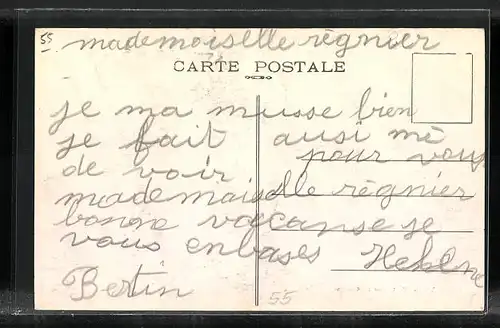 55
mademoiselle règnier
CARTE POSTALE
je ma musse bien
je fait ausi mè
de voir pour vous
mademaiselle règnier
bonne vaccanse je
vous enbases Helene
Bertin
55